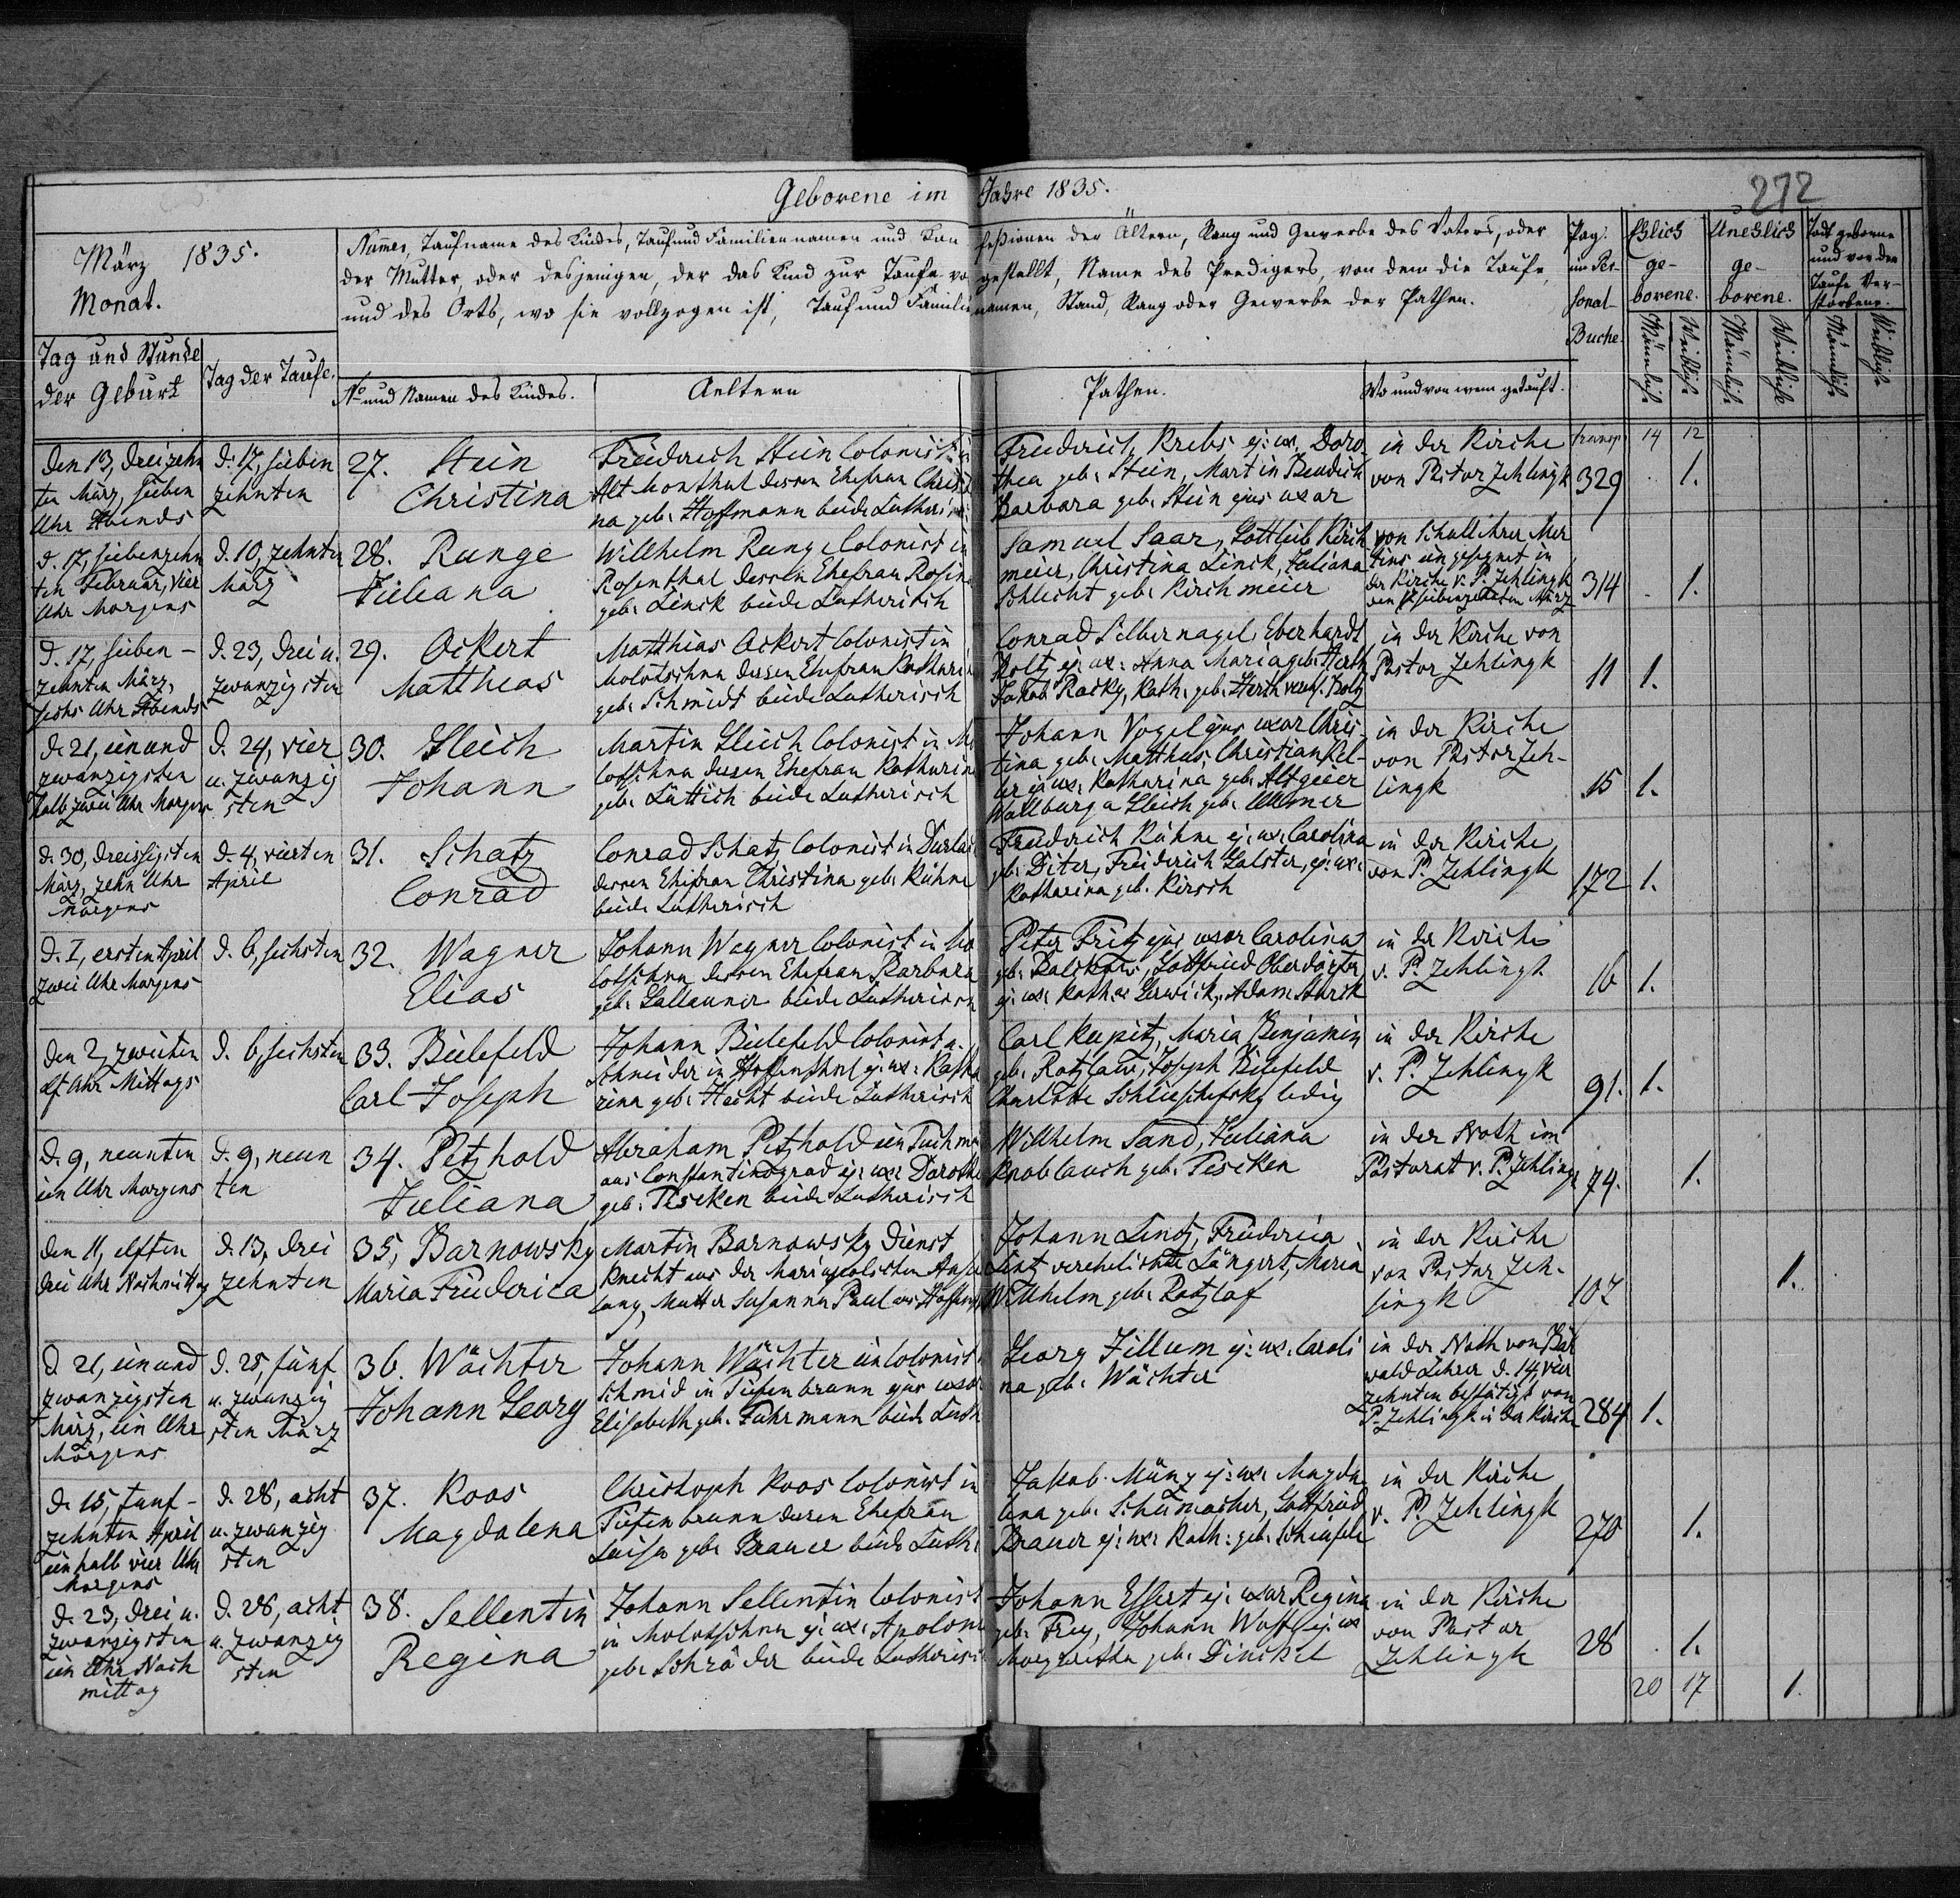 Geborene im Jahre 1835.
272
März 1835.
Monat.
Nummer, Taufname des Kindes, Tauf und Familiennamen und Confeßionen der Ältern, Rang und Gewerbe des Vaters, oder
der Mutter, oder desjenigen, der das Kind zur Taufe vorgestellt, Name des Predigers, von dem die Taufe,
und des Orts, wo sie vollzogen ist, Tauf und Familiennamen, Stand, Rang oder Gewerbe der Pathen.
Pag.
im Per-
sonal-
Buche.
Ehlich
ge-
borene.
Unehlich
ge-
borene.
Todt geborne
und vor der
Taufe Ver-
storbene.
Männliche
Weibliche
Männliche
Weibliche
Männliche
Weibliche
Tag und Stunde
der Geburt
Tag der Taufe.
No und Namen des Kindes.
Aeltern
Pathen.
Wo und von wem getauft.
transp. 14 12
den 13, dreizehn
ten März, sieben
Uhr Abends
d. 17, sieben
zehnten
27. Stein
Christina
Friedrich Stein Colonist in
Alt Monthal dessen Ehefrau Christi
na geb. Hoffmann beide Lutherisch
Friedrich Krebs ej: ux. Doro
thea geb. Stein, Martin Bendich
Barbara geb. Stein ejus uxor
in der Kirche
von Pastor Zehlingk
329
1.
d. 17, siebenzehn
ten Februar, vier
Uhr Morgens
d. 10, zehnten
März
28. Runge
Juliana
Willhelm Runge Colonist in
Rosenthal dessen Ehefrau Rosine
geb. Linck beide Lutherisch
Samuel Saar, Gottlieb Kirch
meier, Christina Linck, Juliana
Schlecht geb. Kirchmeier
von Schullehrer Mer
tins eingesegnet in
der Kirche v. P. Zehlingk
den siebenzehnten März
314
1.
d. 17, sieben-
zehnten März,
sechs Uhr Abends
d. 23, drei u.
zwanzigsten
29. Ackert
Matthias
Matthias Ackert Colonist in
Molotschna dessen Ehefrau Kathari
geb. Schmidt beide Lutherisch
Conrad Silbernagel, Eberhardt
Koltz ej: ux: Anna Maria geb. Herth
Jakob Racky, Kath. geb. Herth
in der Kirche von
Pastor Zehlingk
11
1.
d. 21, einund
zwanzigsten
halb zwei Uhr Morgens
d. 24, vier
u. zwanzig
sten
30. Gleich
Johann
Martin Gleich Colonist in Mo
lotschna dessen Ehefrau Katharina
geb. Lüttich beide Lutherisch
Johann Vogel ejus uxor Chris-
tina geb. Matthus, Christian Kel-
ler ej: ux: Katharina geb. Altgeier
Wallburga Gleich geb. Ullmer
in der Kirche
von Pastor Zeh-
lingk
15
1.
d. 30, dreissigsten
März, zehn Uhr
Morgens
d. 4, vierten
April
31. Schatz
Conrad
Conrad Schatz Colonist in Durlach
dessen Ehefrau Christina geb. Kühne
beide Lutherisch
Friedrich Kühne ej: ux: Carolina
geb. Diter, Friederich Galster, ej: ux:
Katharina geb. Kirsch
in der Kirche
von P. Zehlingk
172
1.
d. 1, ersten April
zwei Uhr Morgens
d. 6, sechsten
32. Wagner
Elias
Johann Wagner Colonist in Mo
lotschna dessen Ehefrau Barbara
geb. Gallauner beide Lutherisch
Peter Fritz ejus uxor Carolina
Gottfried Oberdörfer
ej: ux: Adam Stark
in der Kirche
v. P. Zehlingk
16
1.
den 2, zweiten
elf Uhr Mittags
d. 6, sechsten
33. Bielefeld
Carl Joseph
Johann Bielefeld Colonist u.
Schneider in Hoffenthal ej: ux: Katha
rina geb. Hecht beide Lutherisch
Carl Kupitz, Maria Benjamin
geb. Rotzlaw, Joseph Bielefeld
Charlotte Schlieschefsky ledig
in der Kirche
v. P. Zehlingk
91.
1.
d. 9, neunten
ein Uhr Morgens
d. 9, neun
ten
34. Petzhold
Juliana
Abraham Petzhold ein Tuchma
aus Constantinograd ej: ux: Dorothe
geb. Tiseken beide Lutherisch
Willhelm Sand, Juliana
Knoblauch geb. Tiseken
in der Noth im
Pastorat v. P. Zehlingk
74.
1.
den 11, elften
drei Uhr Nachmittag
d. 13, drei
zehnten
35, Barnowsky
Maria Friederica
Martin Barnowsky Dienst
Knecht aus der Mariupolischen Ansie
lung, Mutter Susanna Paul
Johann Lintz, Friederica
Lint verehelichte Längert, Maria
Willhelm geb. Rotzlaf
in der Kirche
von Pastor Zeh-
lingk
107
1.
d. 21, einund
zwanzigsten
März, ein Uhr
Morgens
d. 25, fünf
u. zwanzig
sten März
36. Wächter
Johann Georg
Johann Wächter ein Colonist
Schmid in Tiefenbrunn ejus uxor
Elisabeth geb. Fuhrmann beide Luth
Georg Zillum ej: ux: Caroli
na geb. Wächter
in der Noth von Bär
wald Lehrer d. 14, vier
zehnten bestätigt von
P. Zehlingk in der Kirche
284
1.
d. 15, funf-
zehnten April
ein halb vier Uhr
Morgens
d. 28, acht
u. zwanzig
sten
37. Koos
Magdalena
Christoph Koos Colonist in
Tiefenbrunn deren Ehefrau
Luisa geb. Brauer beide Luth:
Jakob Münz ej: ux: Magda
lena geb. Schumacher, Gottfried
Brauer ej: ux: Kath: geb. Scheufele
in der Kirche
v. P. Zehlingk
270
1.
d. 23, drei u.
zwanzigsten
ein Uhr Nach
mittag
d. 28, acht
u. zwanzig
sten
38. Sellentin
Regina
Johann Sellentin Colonist
in Molotschna ej: ux: Apolonia
geb. Schräder beide Lutherisch
Johann Essert ej: uxor Regina
geb. Frey, Johann Wolf ej: ux
Margaretha geb. Dinckel
in der Kirche
von Pastor
Zehlingk
28
1.
20 17 1.